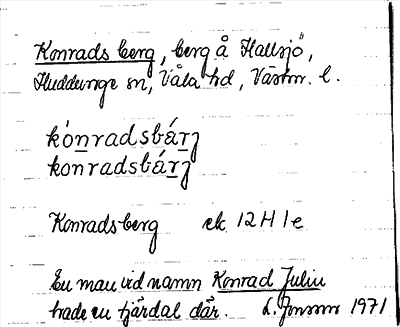 Konrads berg, berg å Hallsjö,
Huddunge sn, Våla hd, Västm. l.
kónradsbárj
konradsbárj
Konradsberg ek. 12 H 1 e
En man vid namn Konrad Julin
hade en tjärdal där. L. Jonsson 1971